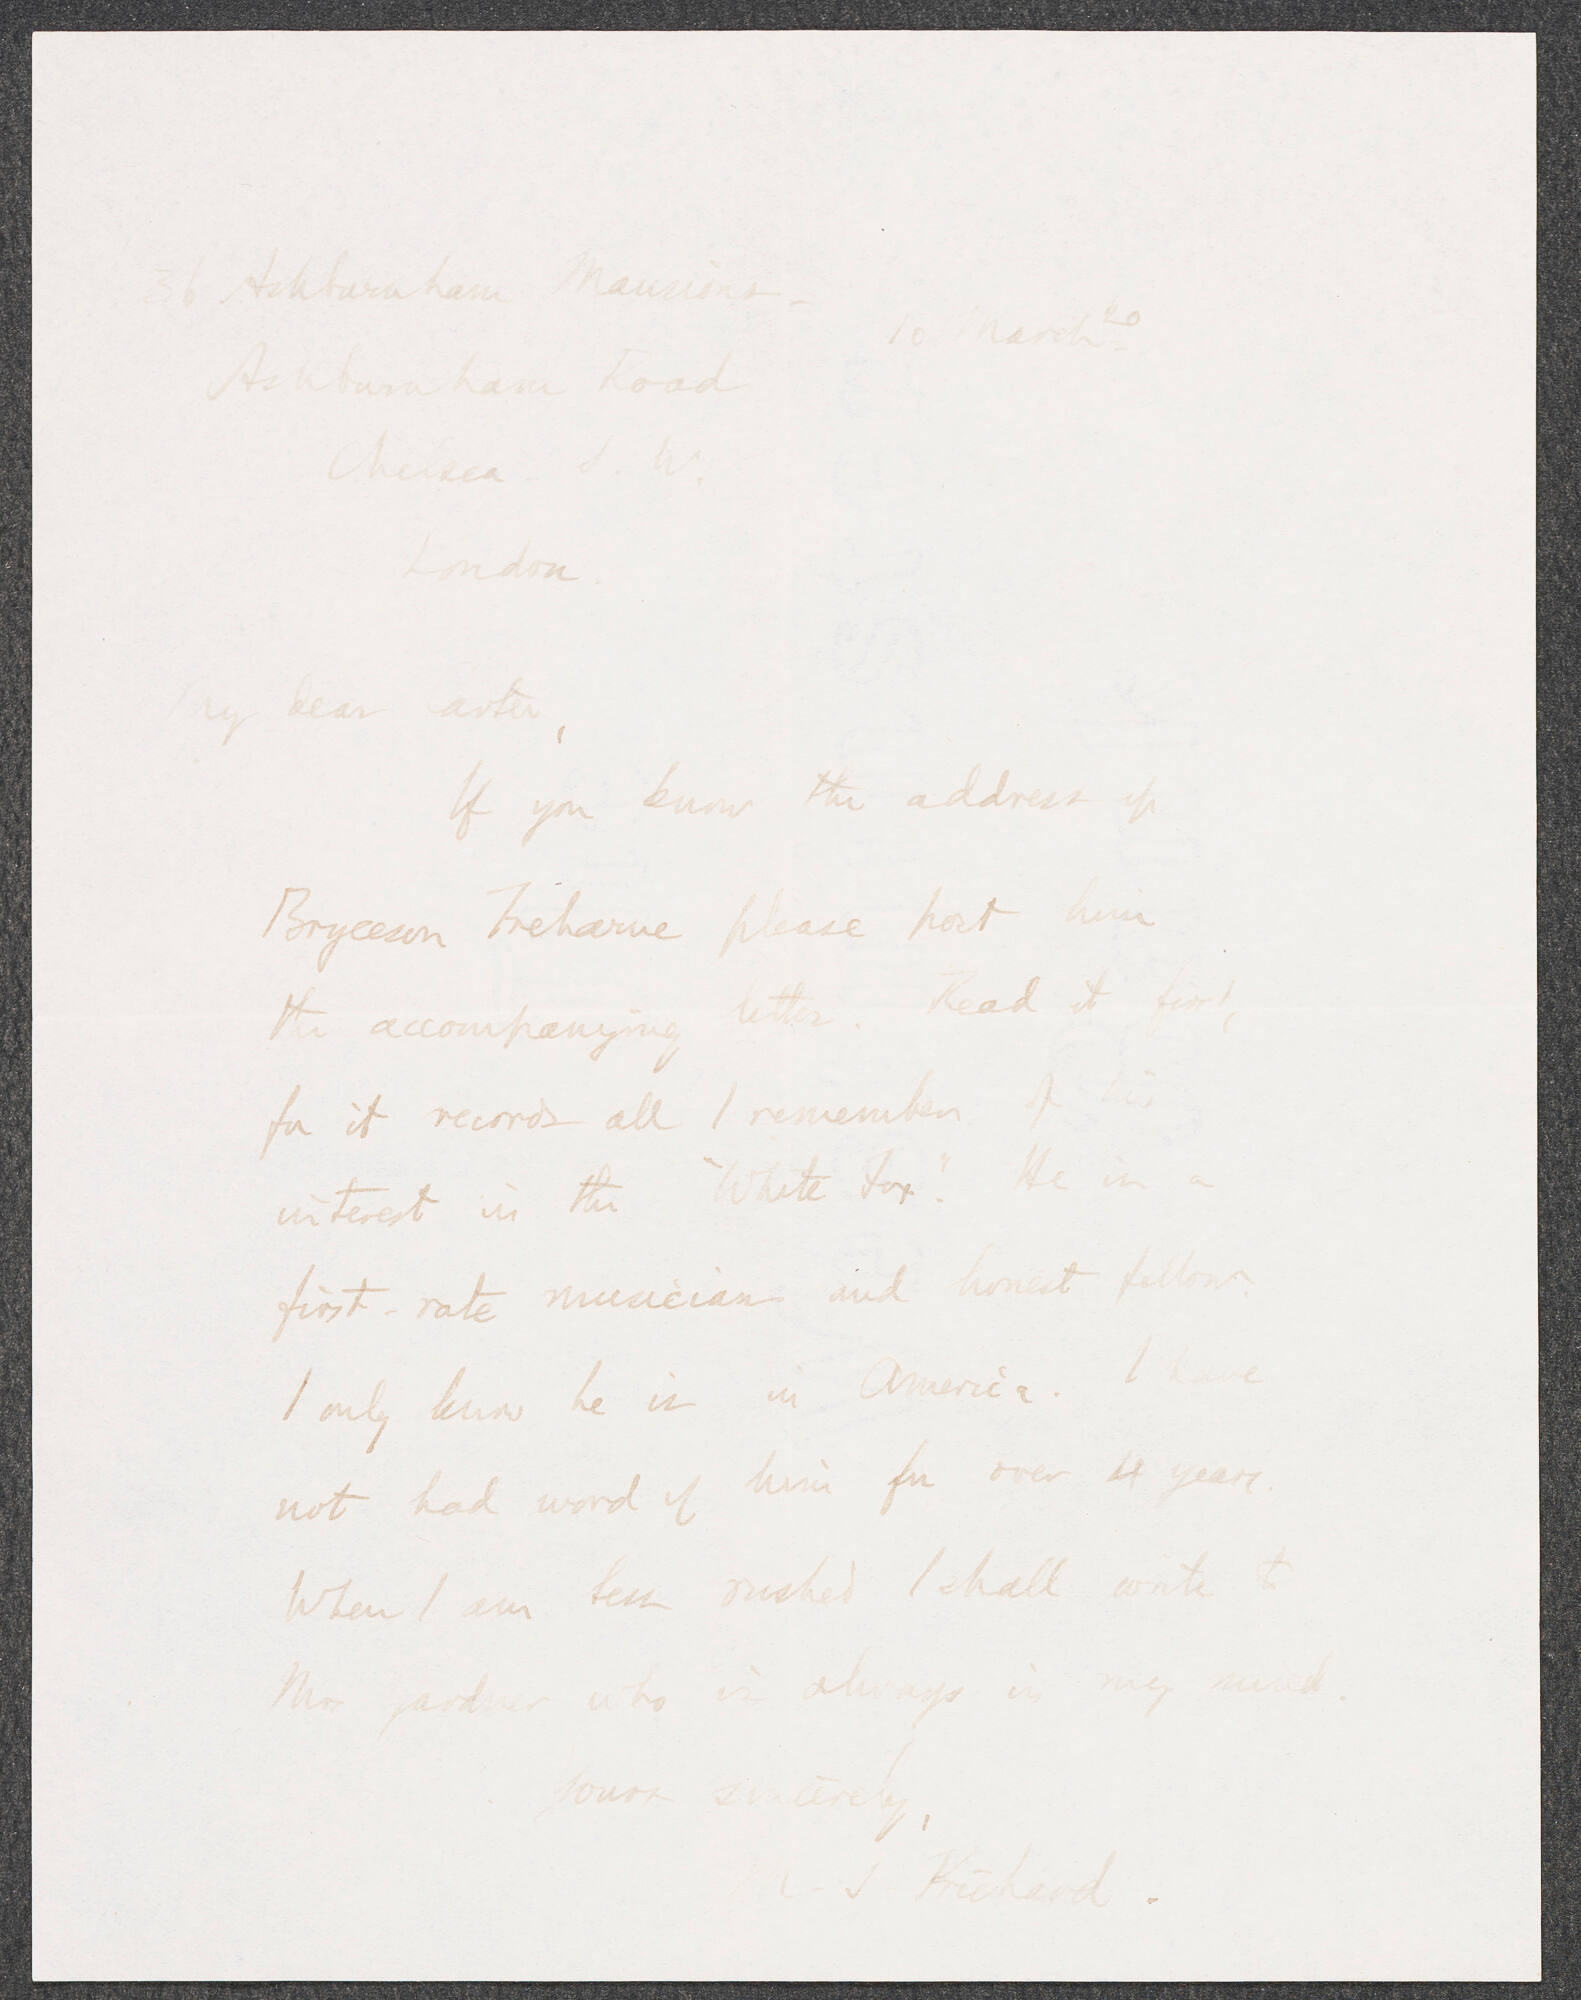 36 Ashburnham Mansions -
10 March 20
Ashburnham Road
Chelsea. S. W.
London.
My dear Carter,
If you know the address of
Bryceson Treharne please post him
the accompanying letter. Read it first,
for it records all I remember of his
interest in the "White Fox". He is a
first-rate musician and honest fellow.
I only know he is in America. I have
not had word of him for over 4 years.
When I am less rushed I shall write to
Mrs Gardner who is always in my mind.
Yours sincerely,
M. S. Prichard.